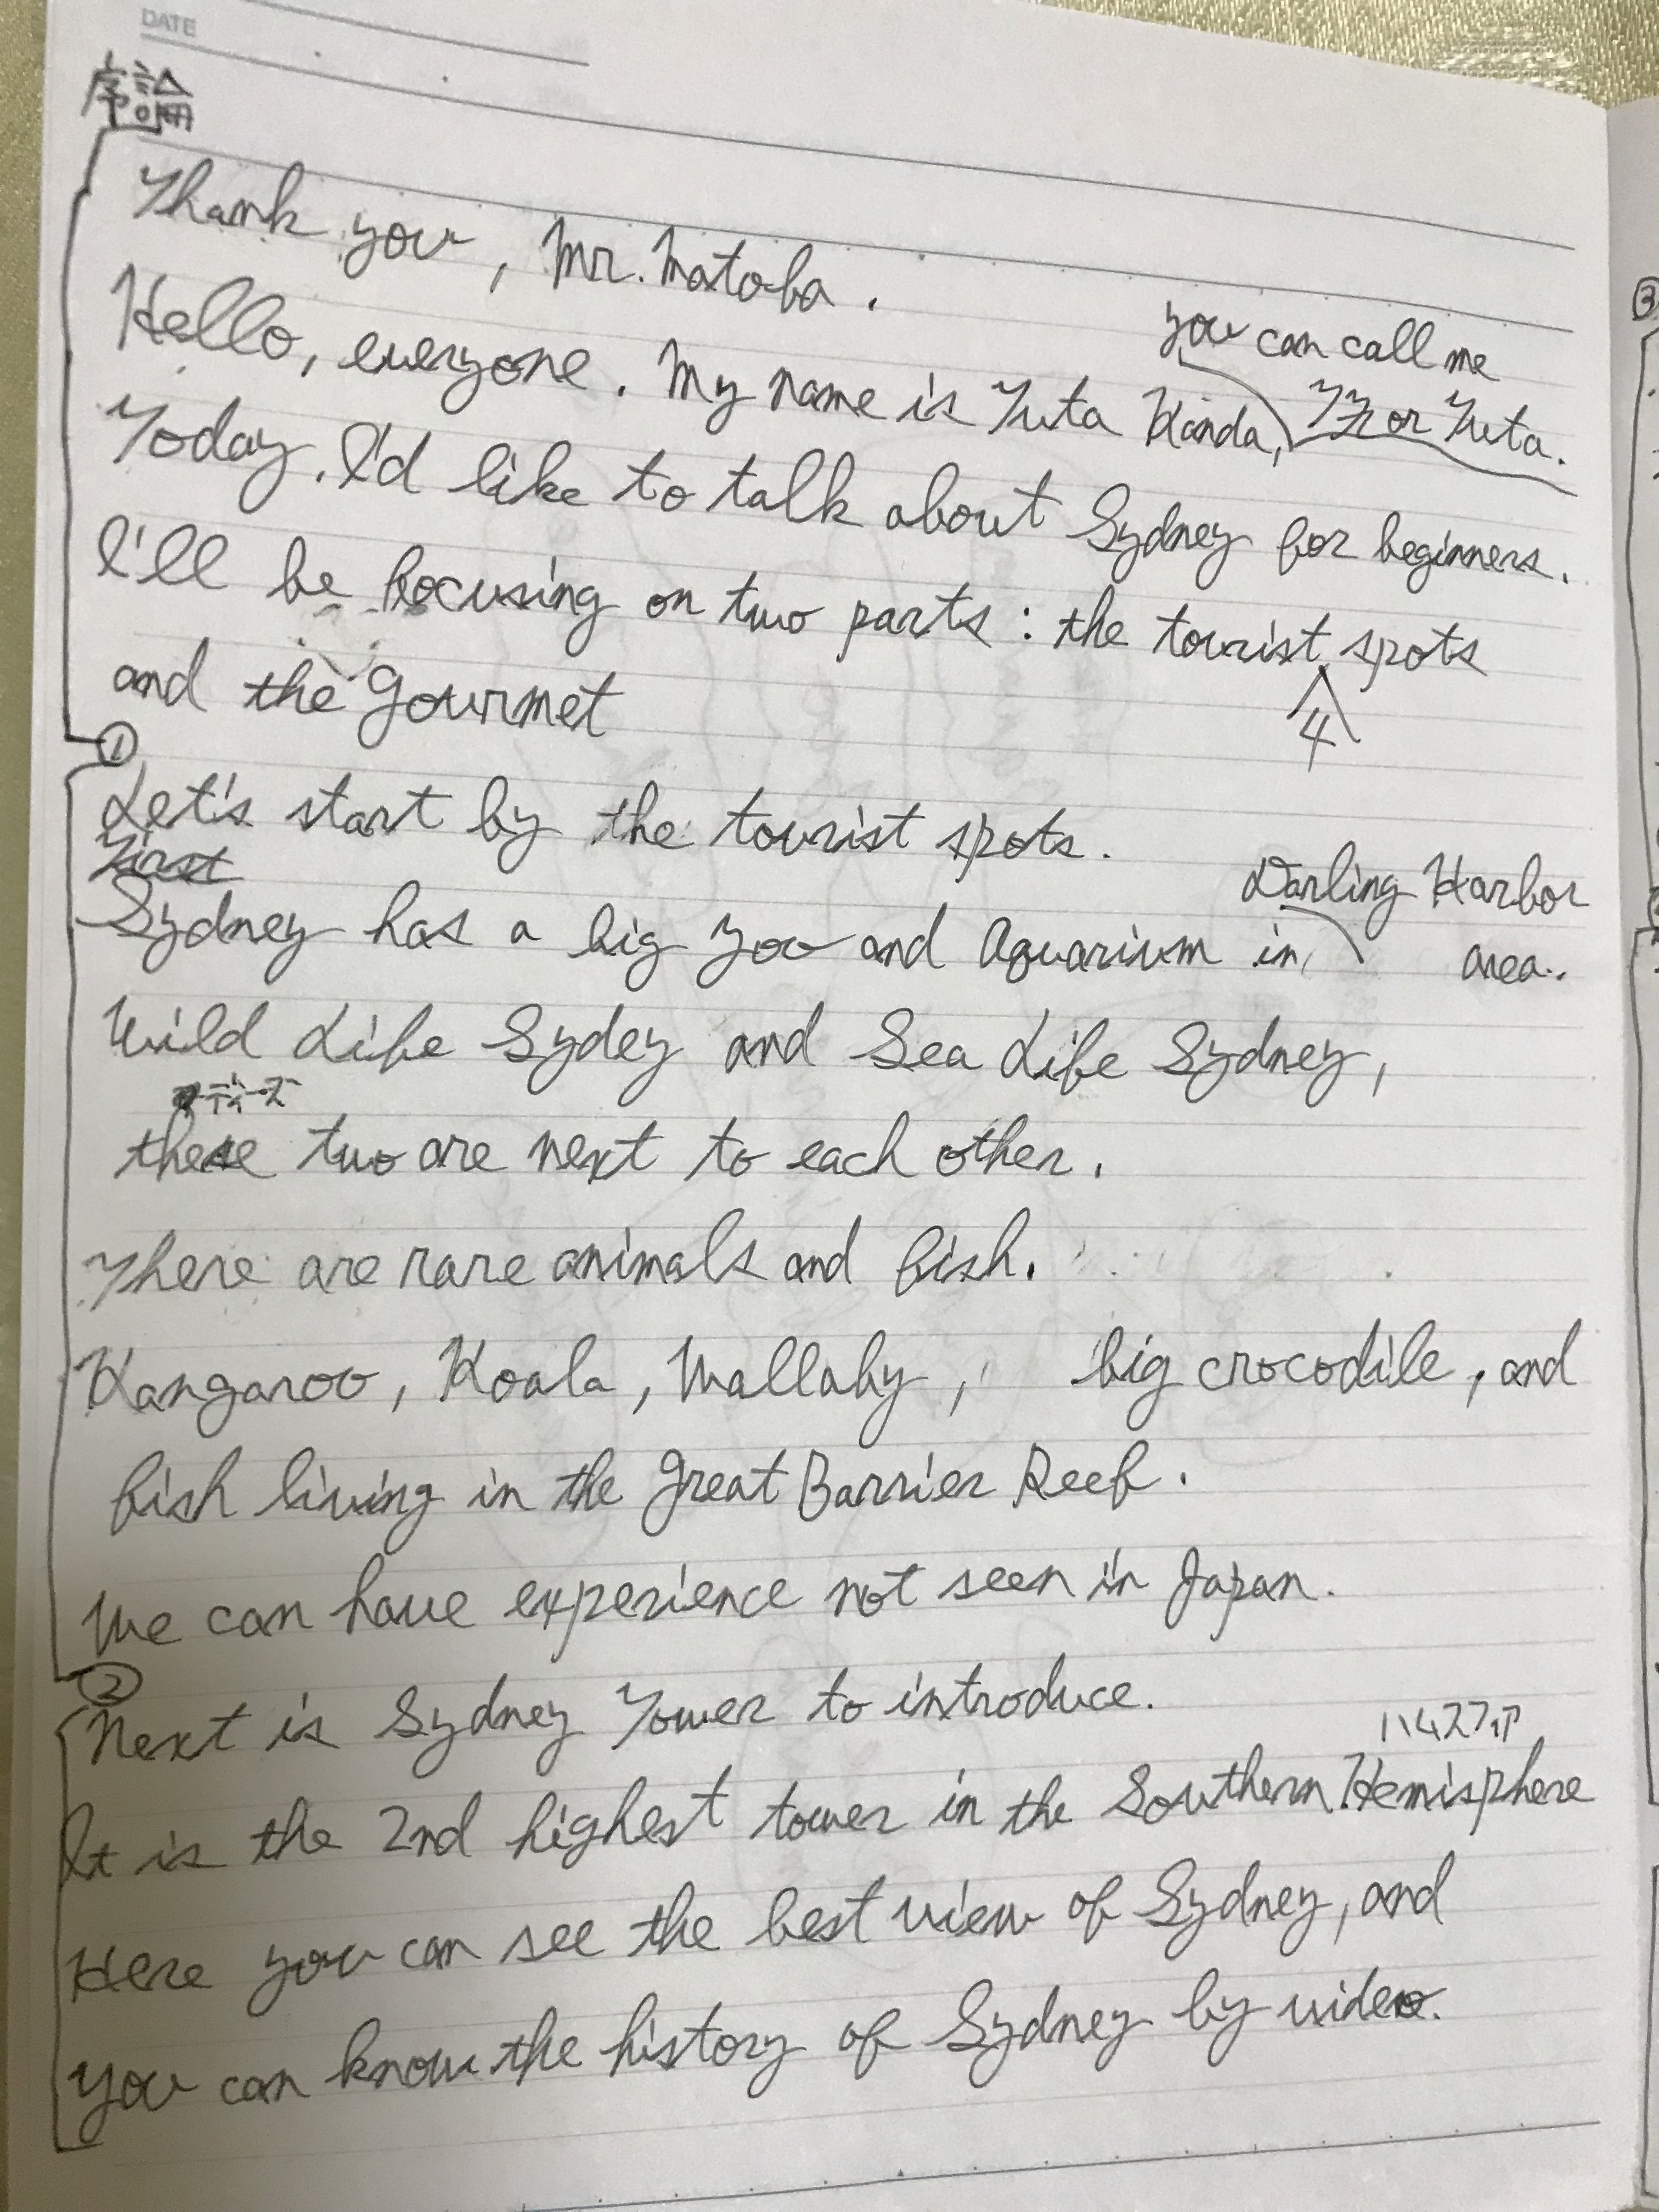 DATE
序論
Thank you, Mr. Matoba.
you can call me
Hello, everyone. My name is Yuta Kanda, or Yuta.
Today, I'd like to talk about Sydney for beginners.
I'll be focusing on two parts: the tourist spots
4
and the gourmet
①
Let's start by the tourist spots.
First
Darling Harbor
Sydney has a big zoo and Aquarium in area.
Wild Life Sydey and Sea Life Sydney,
ディーズ
these two are next to each other.
There are rare animals and fish.
Kangaroo, Koala, Wallaby, big crocodile, and
fish living in the Great Barrier Reef.
We can have experience not seen in Japan.
②
Next is Sydney Tower to introduce.
ハムスフィア
It is the 2nd highest tower in the Southern Hemisphere
Here you can see the best view of Sydney, and
you can know the history of Sydney by video.
③